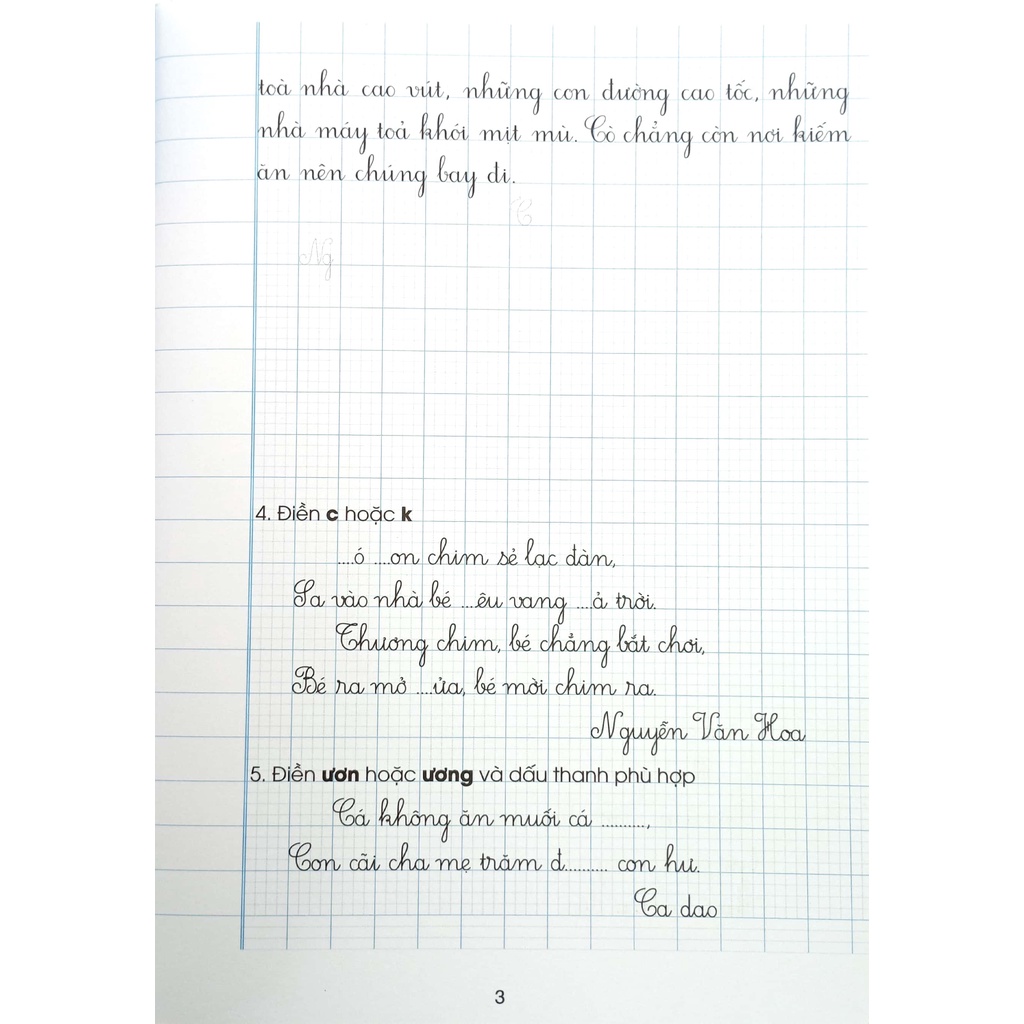 toà nhà cao vút, những con đường cao tốc, những
nhà máy toả khói mịt mù. Cò chẳng còn nơi kiếm
ăn nên chúng bay đi.
C
Ng
4. Điền c hoặc k
....ó ....on chim sẻ lạc đàn,
Sa vào nhà bé ....êu vang ....ả trời.
Thương chim, bé chẳng bắt chơi,
Bé ra mở ....ửa, bé mời chim ra.
Nguyễn Văn Hoa
5. Điền ươn hoặc ương và dấu thanh phù hợp
Cá không ăn muối cá ..........,
Con cãi cha mẹ trăm đ.......... con hư.
Ca dao
3